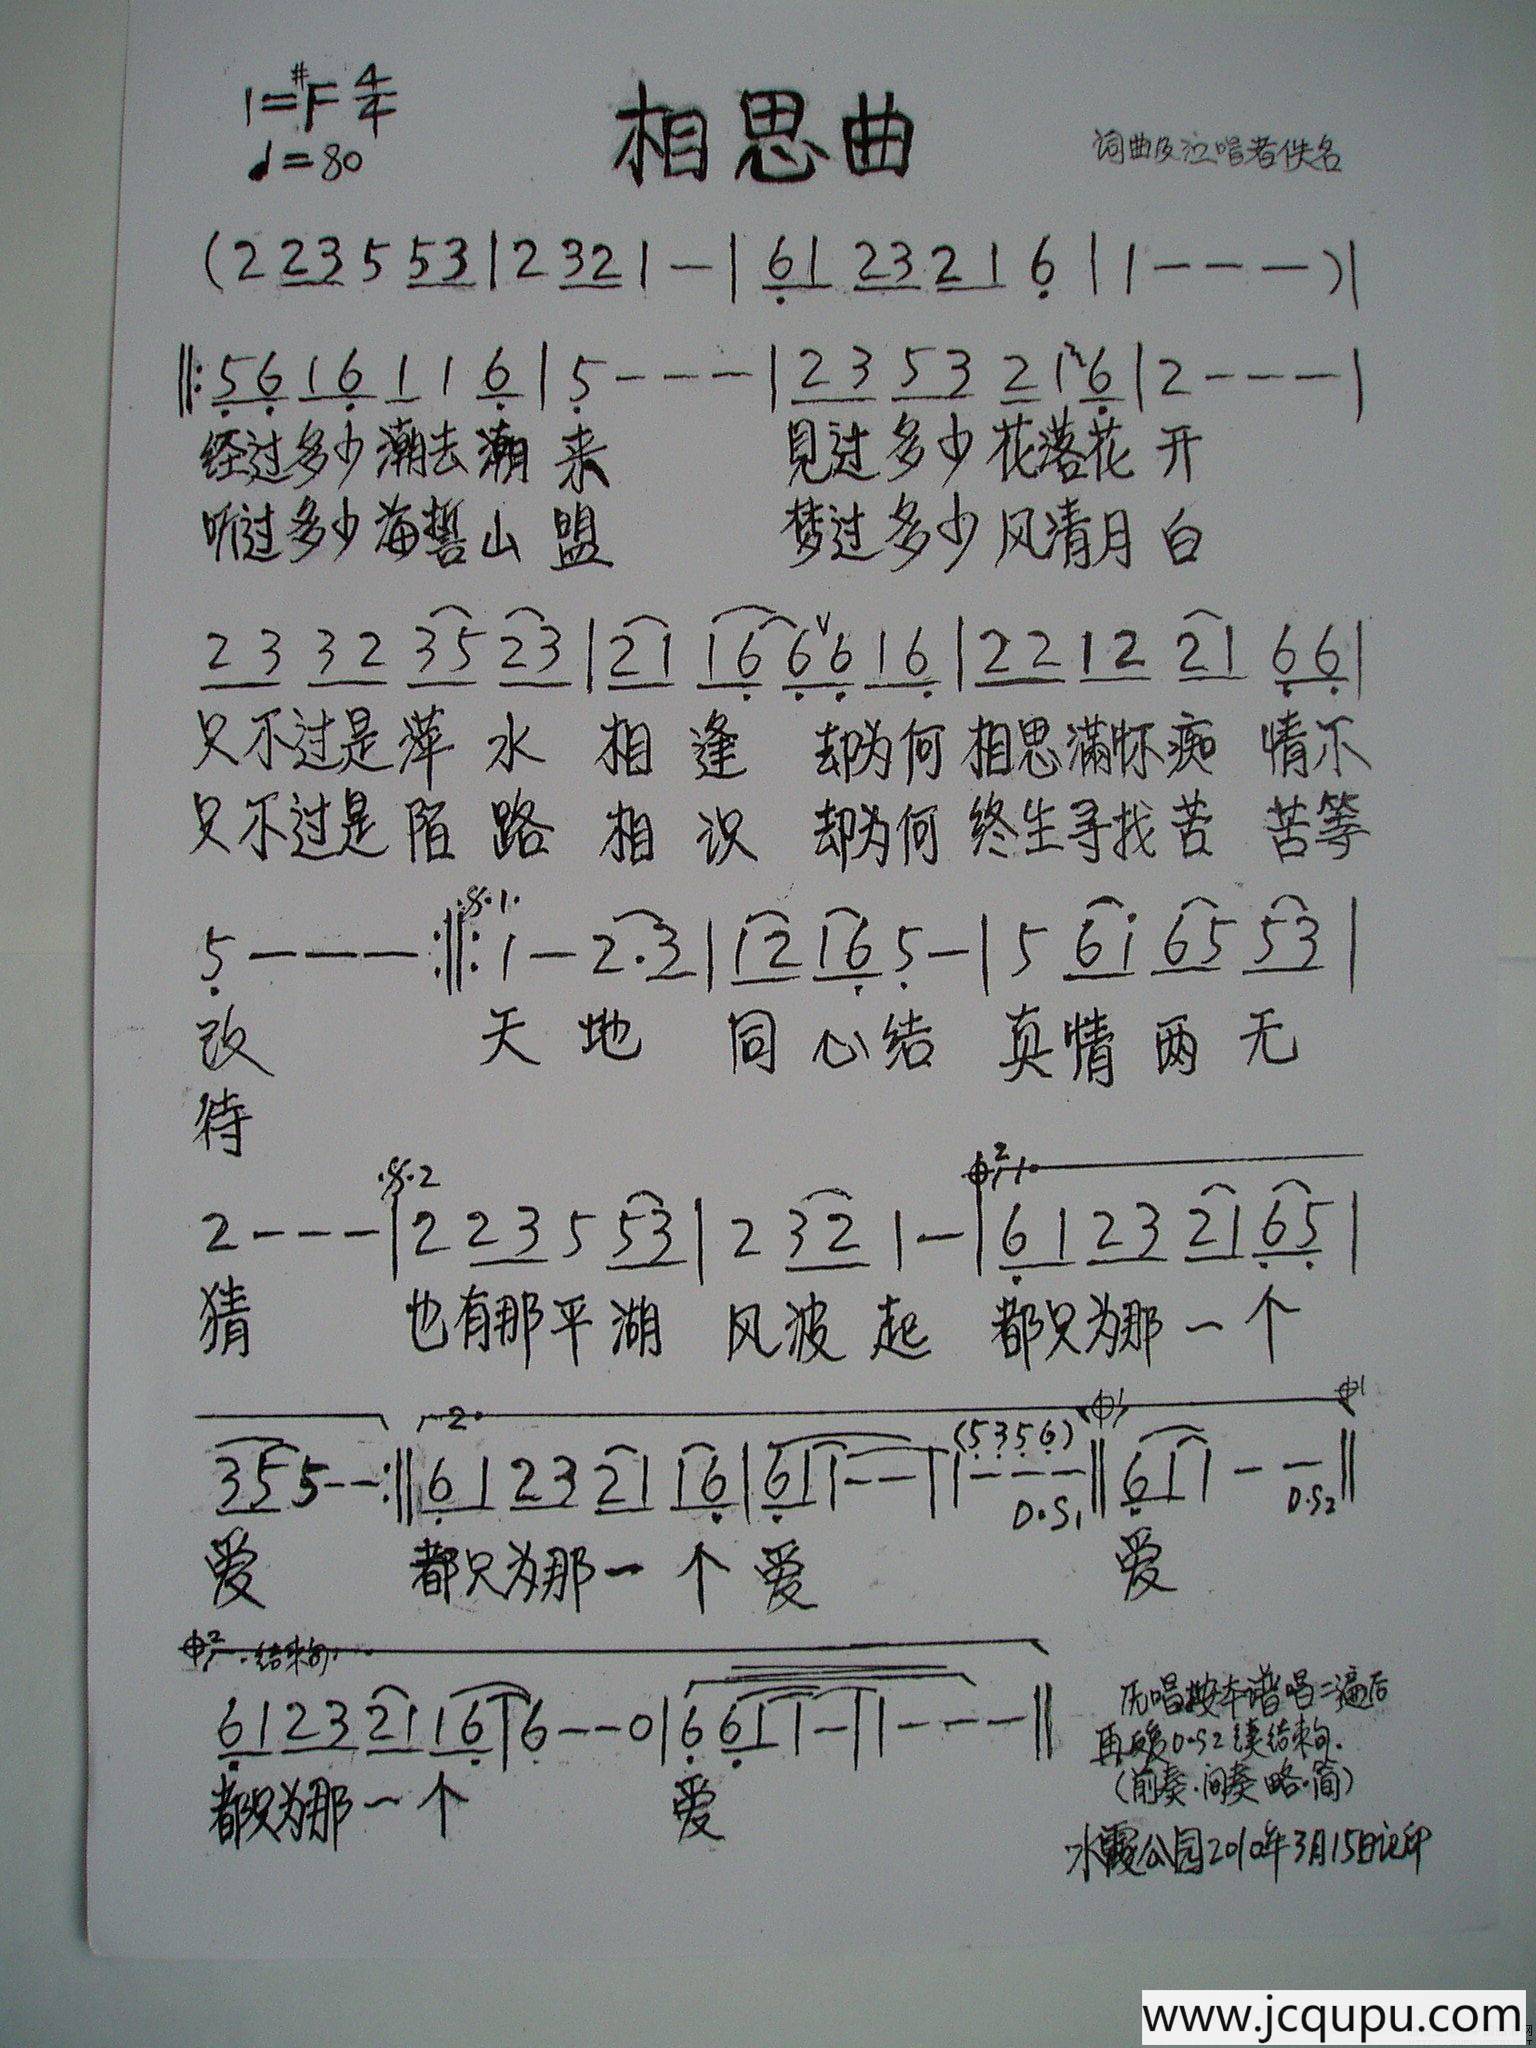 1=#F 4/4
♩=80
相思曲
词曲及泣唱者佚名
(2 23 5 53 | 2 32 1 - | 61 23 21 6 | 1 - - - )|
‖: 56 16 1 1 6 | 5 - - - | 23 53 2 1 6 | 2 - - - |
经过多少潮去潮来 见过多少花落花开
听过多少海誓山盟 梦过多少风清月白
23 32 35 23 | 21 16 66 16 | 22 12 21 66 |
只不过是萍水相逢 却为何相思满怀痴情不
只不过是陌路相识 却为何终生寻找苦苦等
𝄋.1.
5 - - - :‖: 1 - 2.3 | 12 16 5 - | 5 61 65 53 |
改 天地同心结 真情两无
待
𝄋.2 𝄌2 1.
2 - - - | 2 23 5 53 | 2 32 1 - | 61 23 21 65 |
猜 也有那平湖风波起 都只为那一个
2. (5356) 𝄌1 𝄌1
35 5 - - :‖ 61 23 21 16 | 61 1 - - | 1 - - - ‖ 61 1 - - ‖
D.S1 D.S2
爱 都只为那一个爱 爱
𝄌2 结束句
61 23 21 16 | 6 - - 0 | 6 61 1 - | 1 - - - ‖
都只为那一个 爱
历唱按本谱唱二遍后
再反复D.S2接结束句.
(前奏.间奏略.简)
冰霞公园2010年3月15日记印
www.jcqupu.com